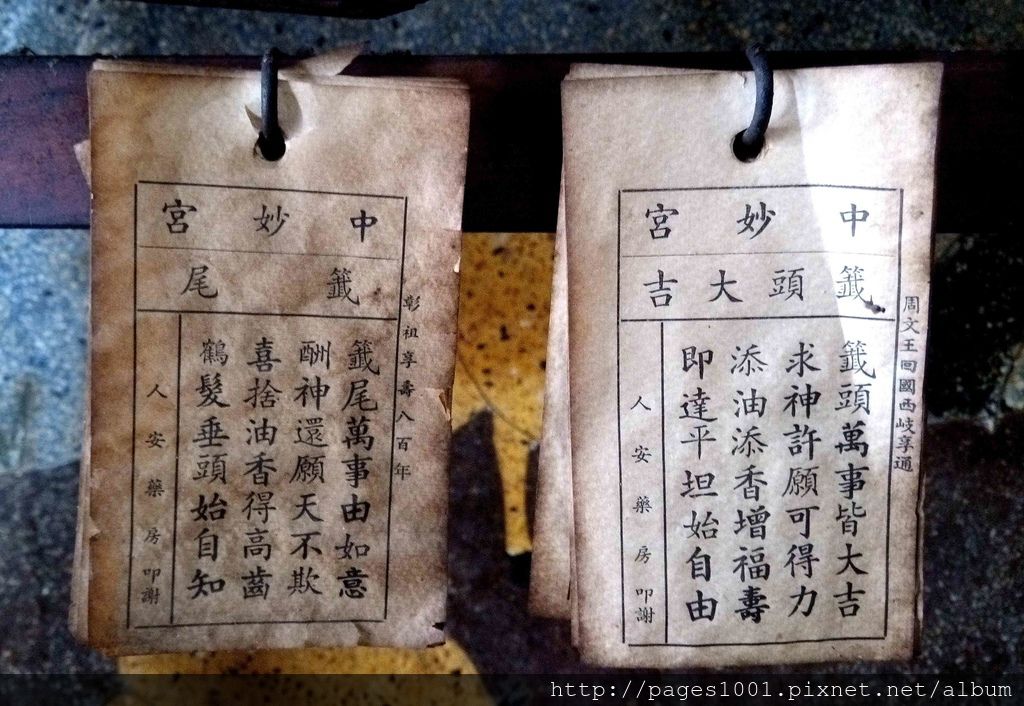 中妙宮
籤頭大吉
周文王回國西岐享通
籤頭萬事皆大吉
求神許願可得力
添油添香增福壽
即達平坦始自由
人安藥房叩謝
中妙宮
籤尾
彰祖享壽八百年
籤尾萬事由如意
酬神還願天不欺
喜捨油香得高齒
鶴髮垂頭始自知
人安藥房叩謝
http://pages1001.pixnet.net/album